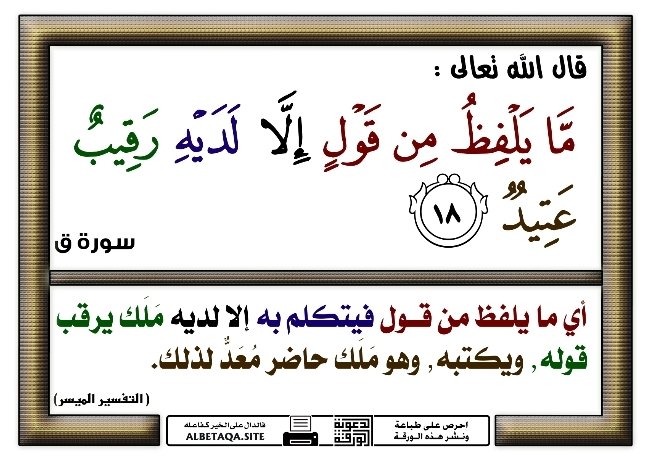 قال الله تعالى :
مَّا يَلْفِظُ مِن قَوْلٍ إِلَّا لَدَيْهِ رَقِيبٌ
عَتِيدٌ ١٨
سورة ق
أي ما يلفظ من قـول فيتكلم به إلا لديه مَلَك يرقب
قوله , ويكتبه , وهو مَلَك حاضر مُعَدٌّ لذلك.
( التفسير الميسر )
احرص على طباعة
ونشر هذه الورقة
الدعوية
الورقة
فالدال على الخير كفاعله
ALBETAQA.SITE